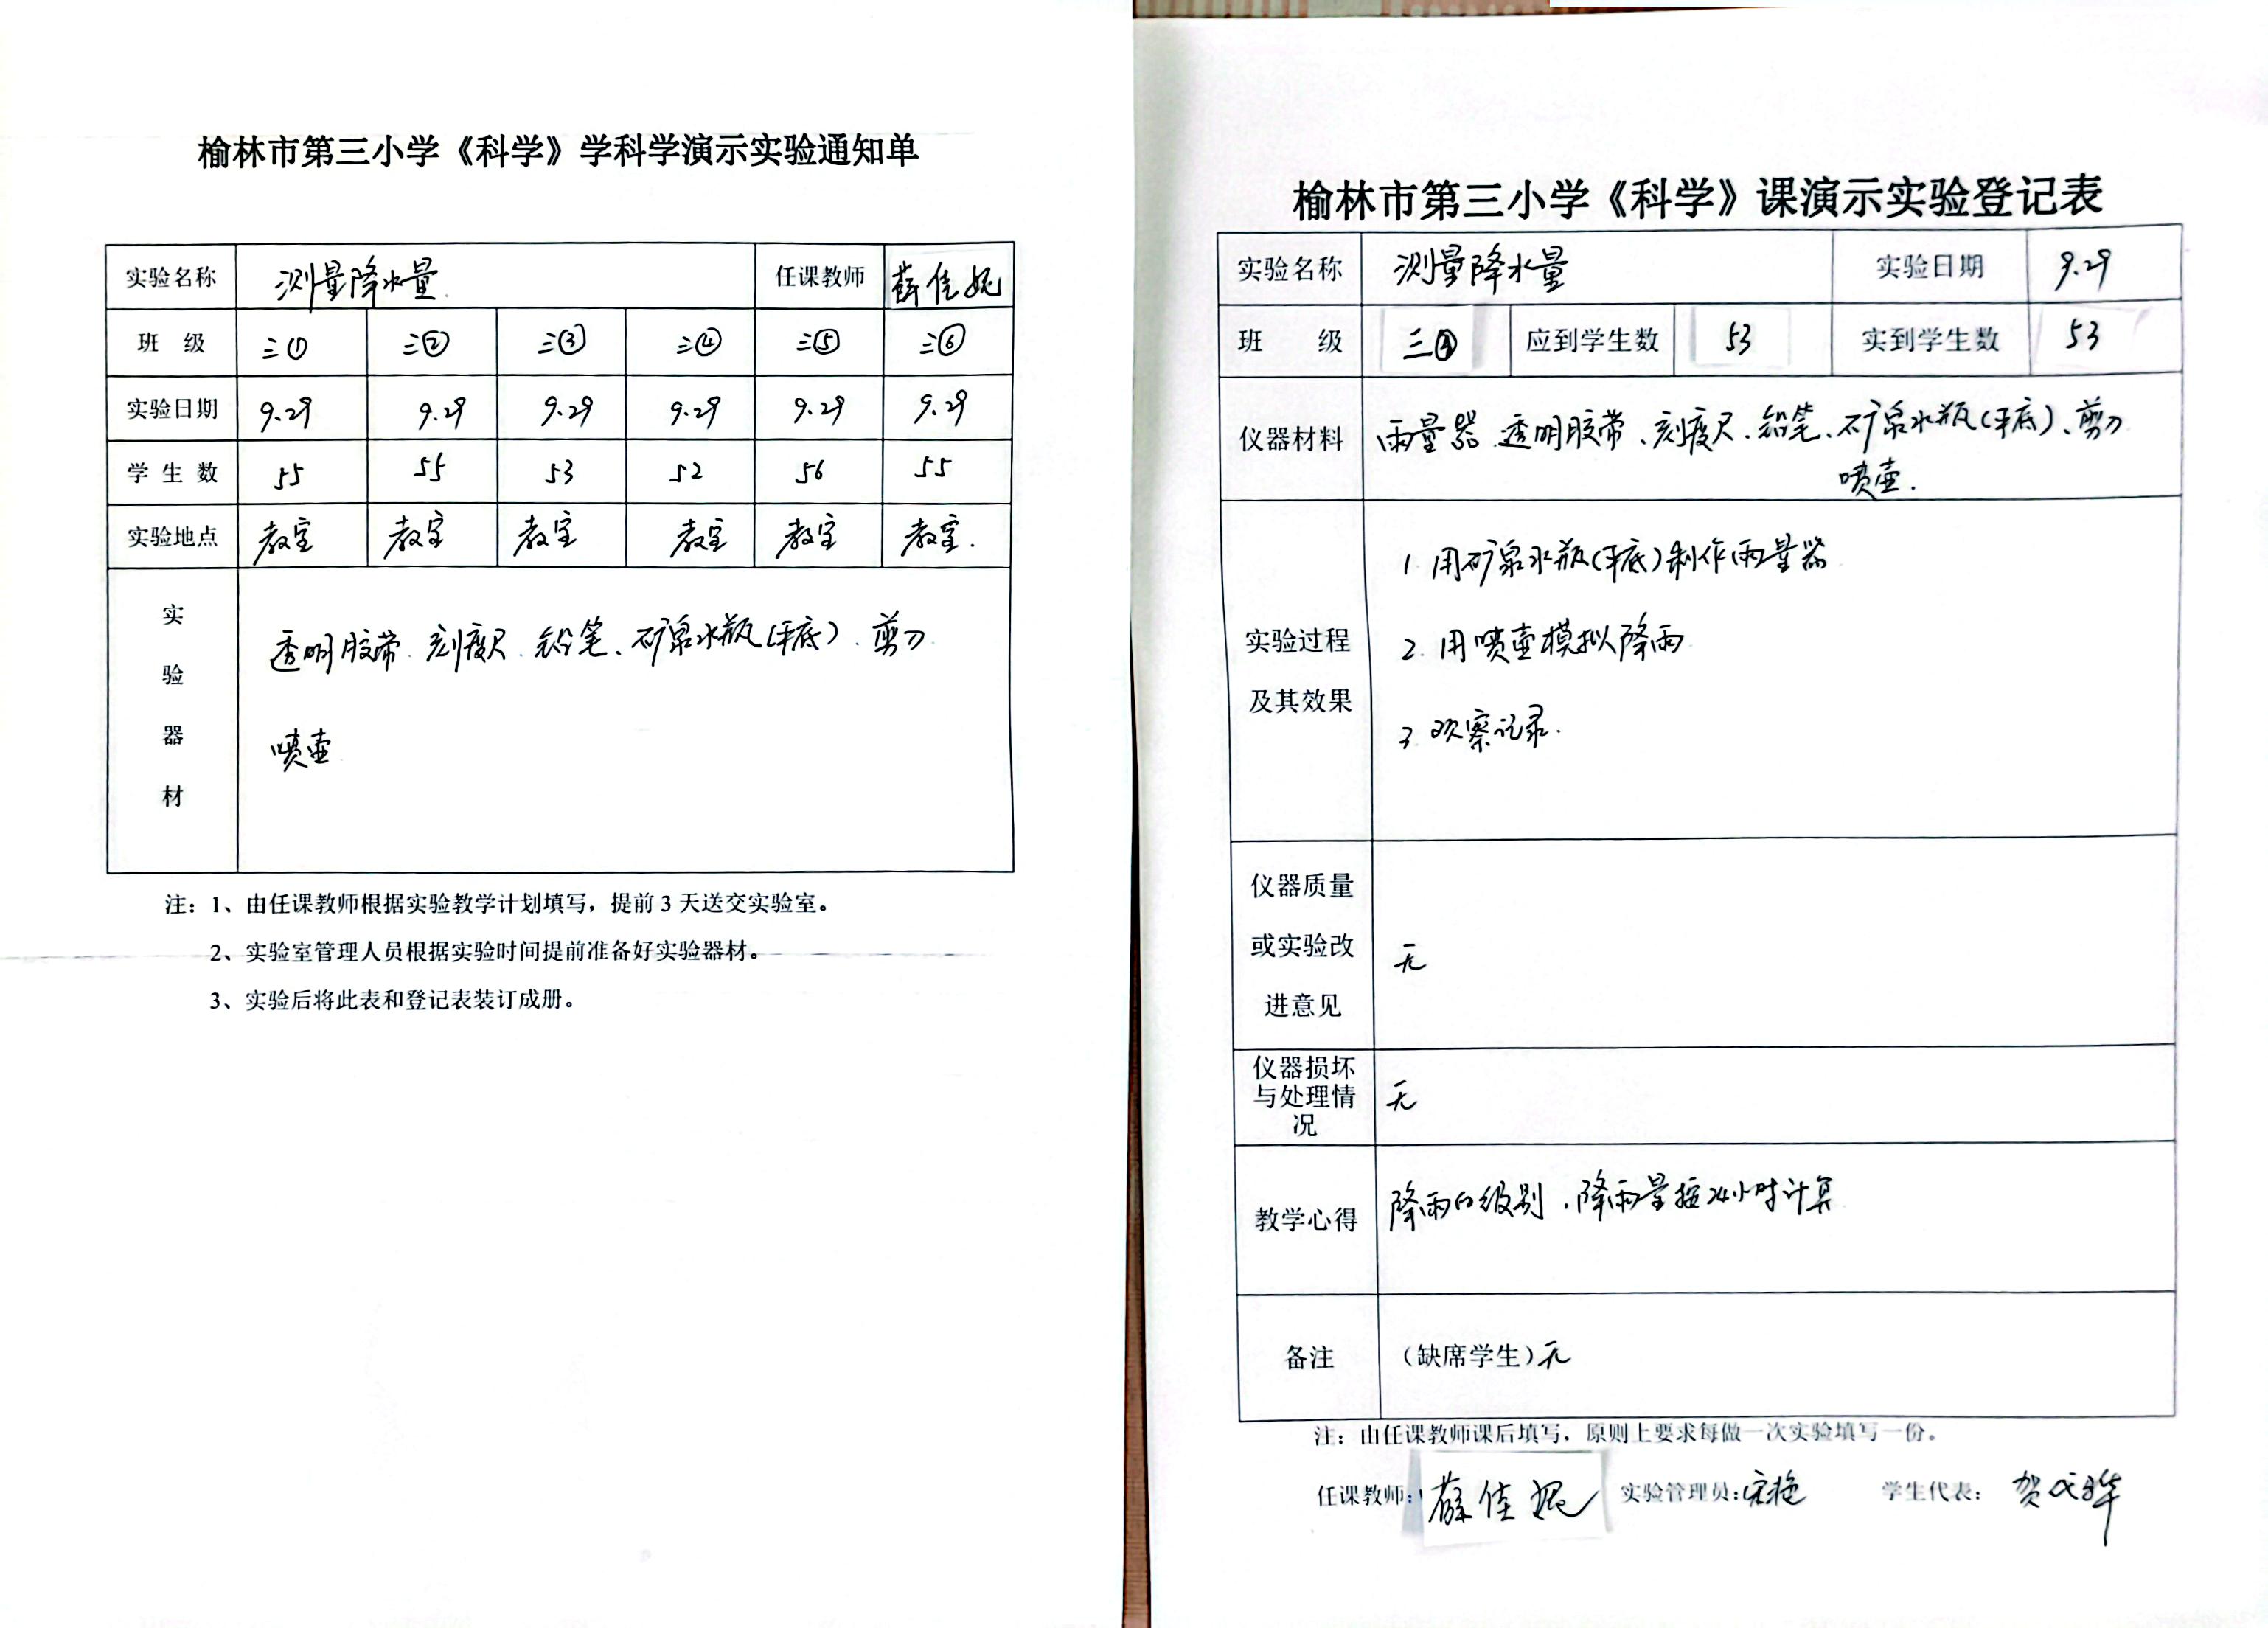 榆林市第三小学《科学》学科学演示实验通知单
实验名称 测量降水量 任课教师 薛佳妮
班 级 三① 三② 三③ 三④ 三⑤ 三⑥
实验日期 9.29 9.29 9.29 9.29 9.29 9.29
学 生 数 55 55 53 52 56 55
实验地点 教室 教室 教室 教室 教室 教室.
实验器材
透明胶带、刻度尺、铅笔、矿泉水瓶(平底)、剪刀
喷壶
注：1、由任课教师根据实验教学计划填写，提前 3 天送交实验室。
2、实验室管理人员根据实验时间提前准备好实验器材。
3、实验后将此表和登记表装订成册。
榆林市第三小学《科学》课演示实验登记表
实验名称 测量降水量 实验日期 9.29
班 级 三 应到学生数 53 实到学生数 53
仪器材料 雨量器、透明胶带、刻度尺、铅笔、矿泉水瓶(平底)、剪刀
喷壶.
实验过程
及其效果
1. 用矿泉水瓶(平底)制作雨量器
2. 用喷壶模拟降雨
3. 观察记录.
仪器质量
或实验改
进意见
无
仪器损坏
与处理情
况
无
教学心得 降雨的级别，降雨量按24小时计算
备注 （缺席学生）无
注：由任课教师课后填写，原则上要求每做一次实验填写一份。
任课教师：薛佳妮 实验管理员： 学生代表：贺